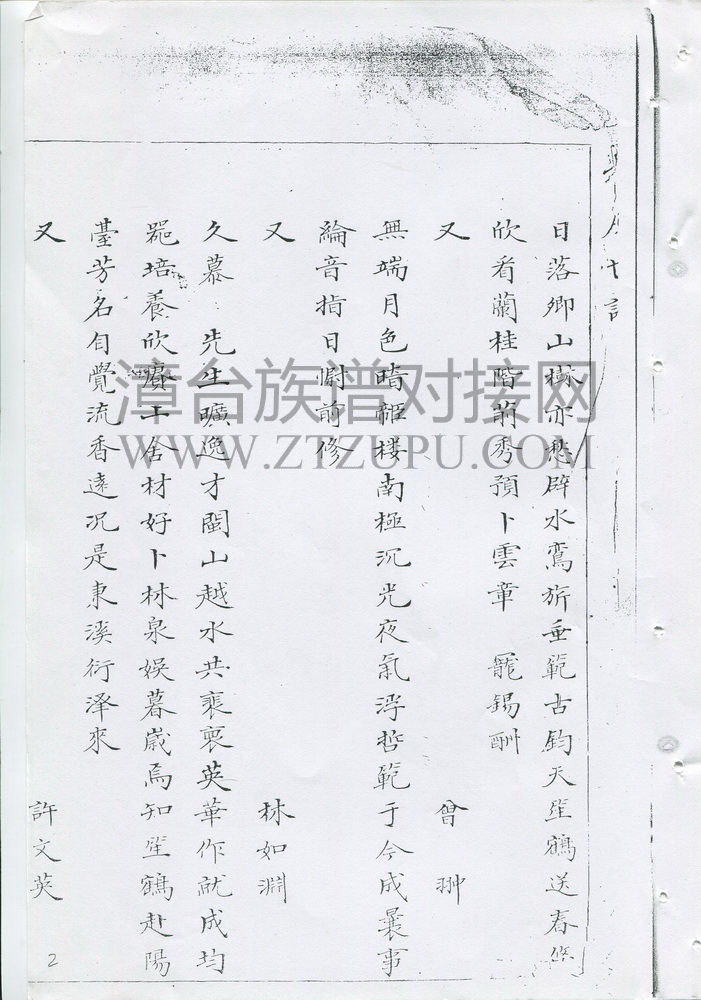 日落鄉山樹亦愁辟水鸞旂垂範古鈞天笙鶴送春悠
欣看蘭桂階前秀預卜雲章寵錫酬
又 曾翀
無端月色暗譙楼南極沉光夜氣浮哲範于今成曩事
綸音指日慰前修
又 林如淵
久慕先生曠逸才閩山越水共裵裒英華作就成均
器培養欣舍材好卜林泉娱暮歲焉知笙鶴赴陽
臺芳名自覺流香遠况是東溪衍泽來
又 許文英
2
漳台族谱对接网
WWW.ZTZUPU.COM